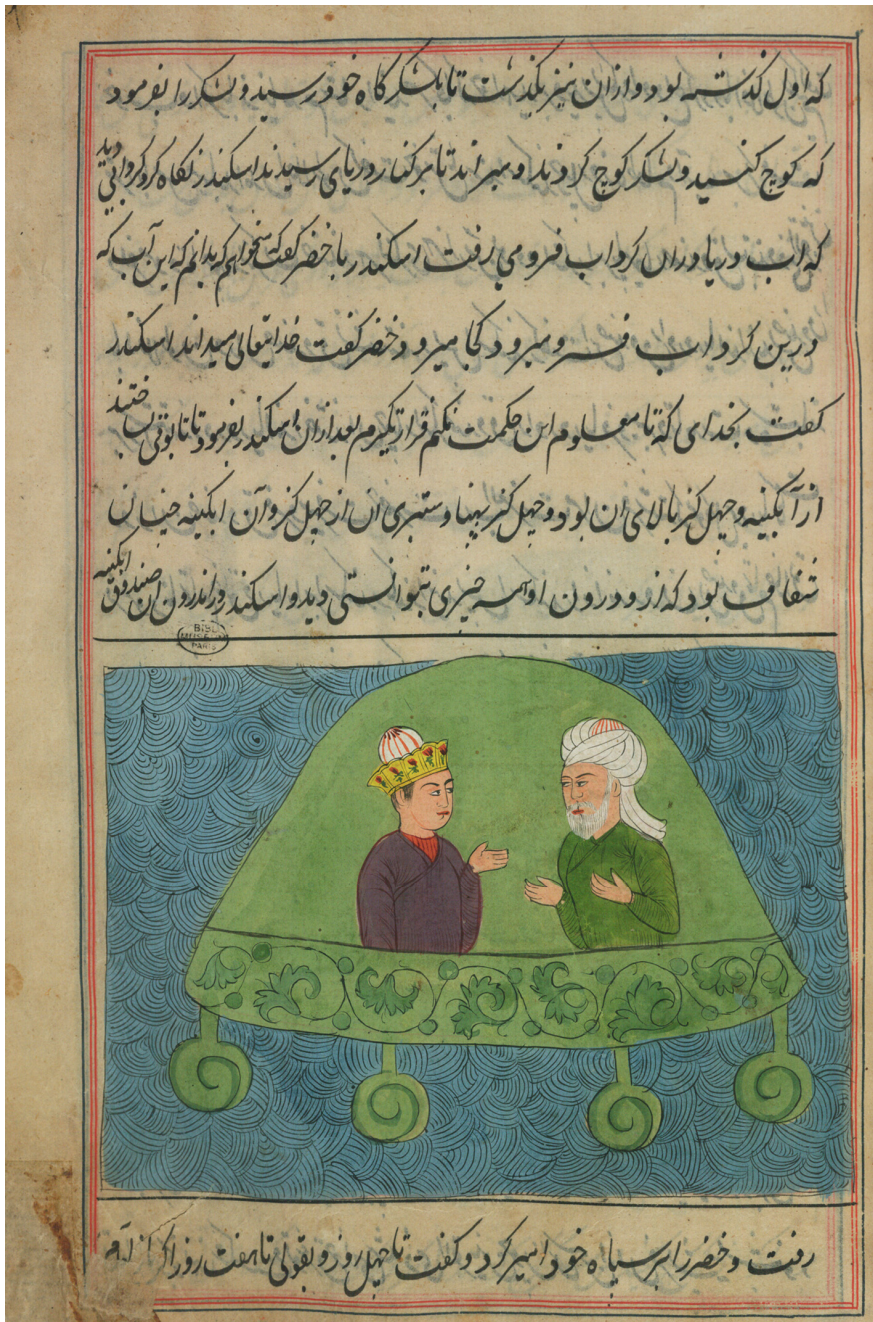 که اول گذشته بود و ازان نیز بگذشت تا بلشکرگاه خود رسید و لشکر را بفرمود
که کوچ کنید و لشکر کوچ کردند و میراند تا بر کنار دریای رسیدند اسکندر نگاه کرد گردابی دید
که اب دریا دران کرداب فرو می رفت اسکندر با خضر گفت که میخواهم که بدانم که این آب که
درین کرداب فرو میرود کجا میرود خضر گفت خدایتعالی میداند اسکندر
گفت بخدای که تا معلوم این حکمت نکنم قرار نگیرم بعد ازان اسکندر بفرمود تا تابوتی ساختند
از آبکینه و چهل کز بالای ان بود و چهل کز پهنا و ستبری ان از چهل کز و آن ابکینه چنان
شفاف بود که از درون او همه چیزی بتوانستی دید و اسکندر در اندرون ان صندوق ابکینه
BIBL
MUSEUM
PARIS
رفت و خضر را بر سپاه خود امیر کرد و گفت تا چهل روز و بقولی تا هفت روز اگر